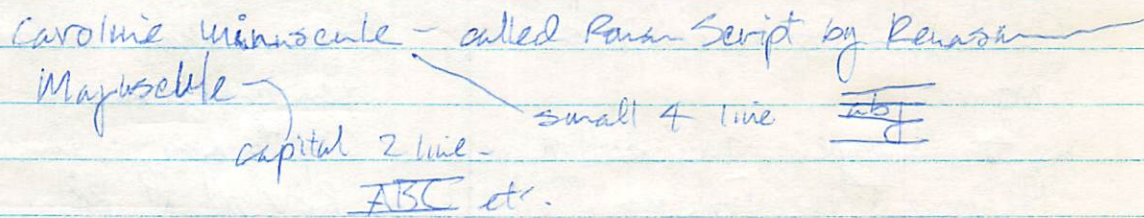 Caroline minuscule - called Roman Script by
Majuscule -
small 4 line abj
capital 2 line -
ABC etc.